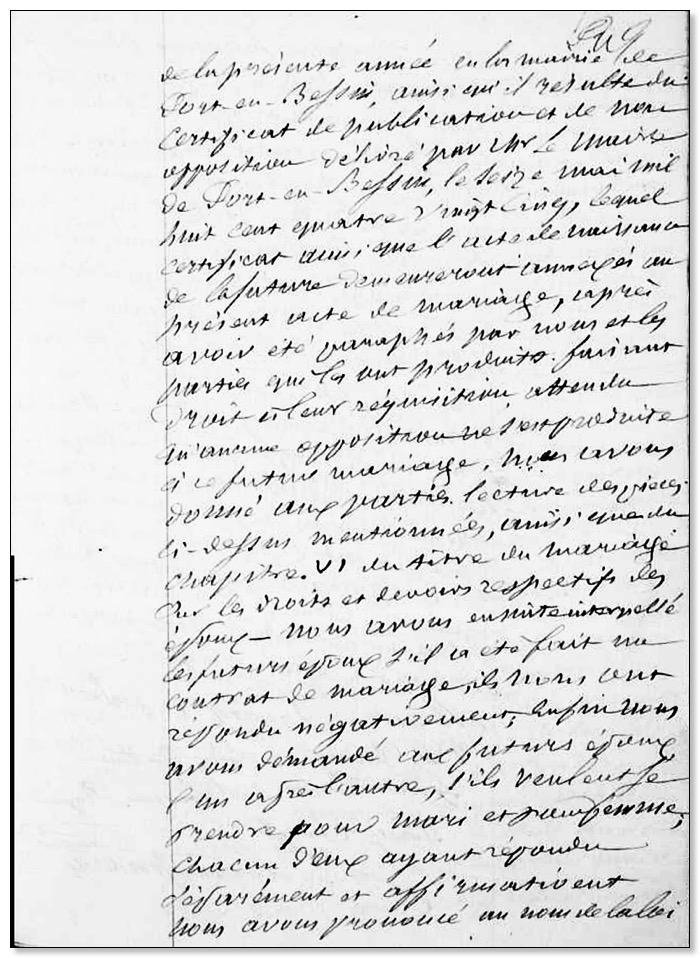 de la présente année en la mairie de
Port-en-Bessin, ainsi qu'il résulte du
certificat de publication et de non
opposition délivré par Mr Le Maire
de Port-en-Bessin, le seize mai mil
huit cent quatre vingt Cinq, lequel
certificat ainsi que l'acte de naissance
de la future demeureront annexés au
présent acte de mariage, après
avoir été paraphés par nous et les
parties qui les ont produits. faisant
droit à leur réquisition attendu
qu'aucune opposition ne s'est produite
à ce futur mariage, nous avons
donné aux parties lecture des pièces
ci-dessus mentionnées, ainsi que du
chapitre. VI du titre du mariage
sur les droits et devoirs respectifs des
époux - nous avons ensuite interpellé
les futurs époux s'il a été fait un
contrat de mariage, ils nous ont
répondu négativement; Enfin nous
avons demandé aux futurs époux
l'un après l'autre, s'ils veulent se
prendre pour mari et pour femme;
chacun d'eux ayant répondu
séparément et affirmativent
nous avons prononcé au nom de la loi